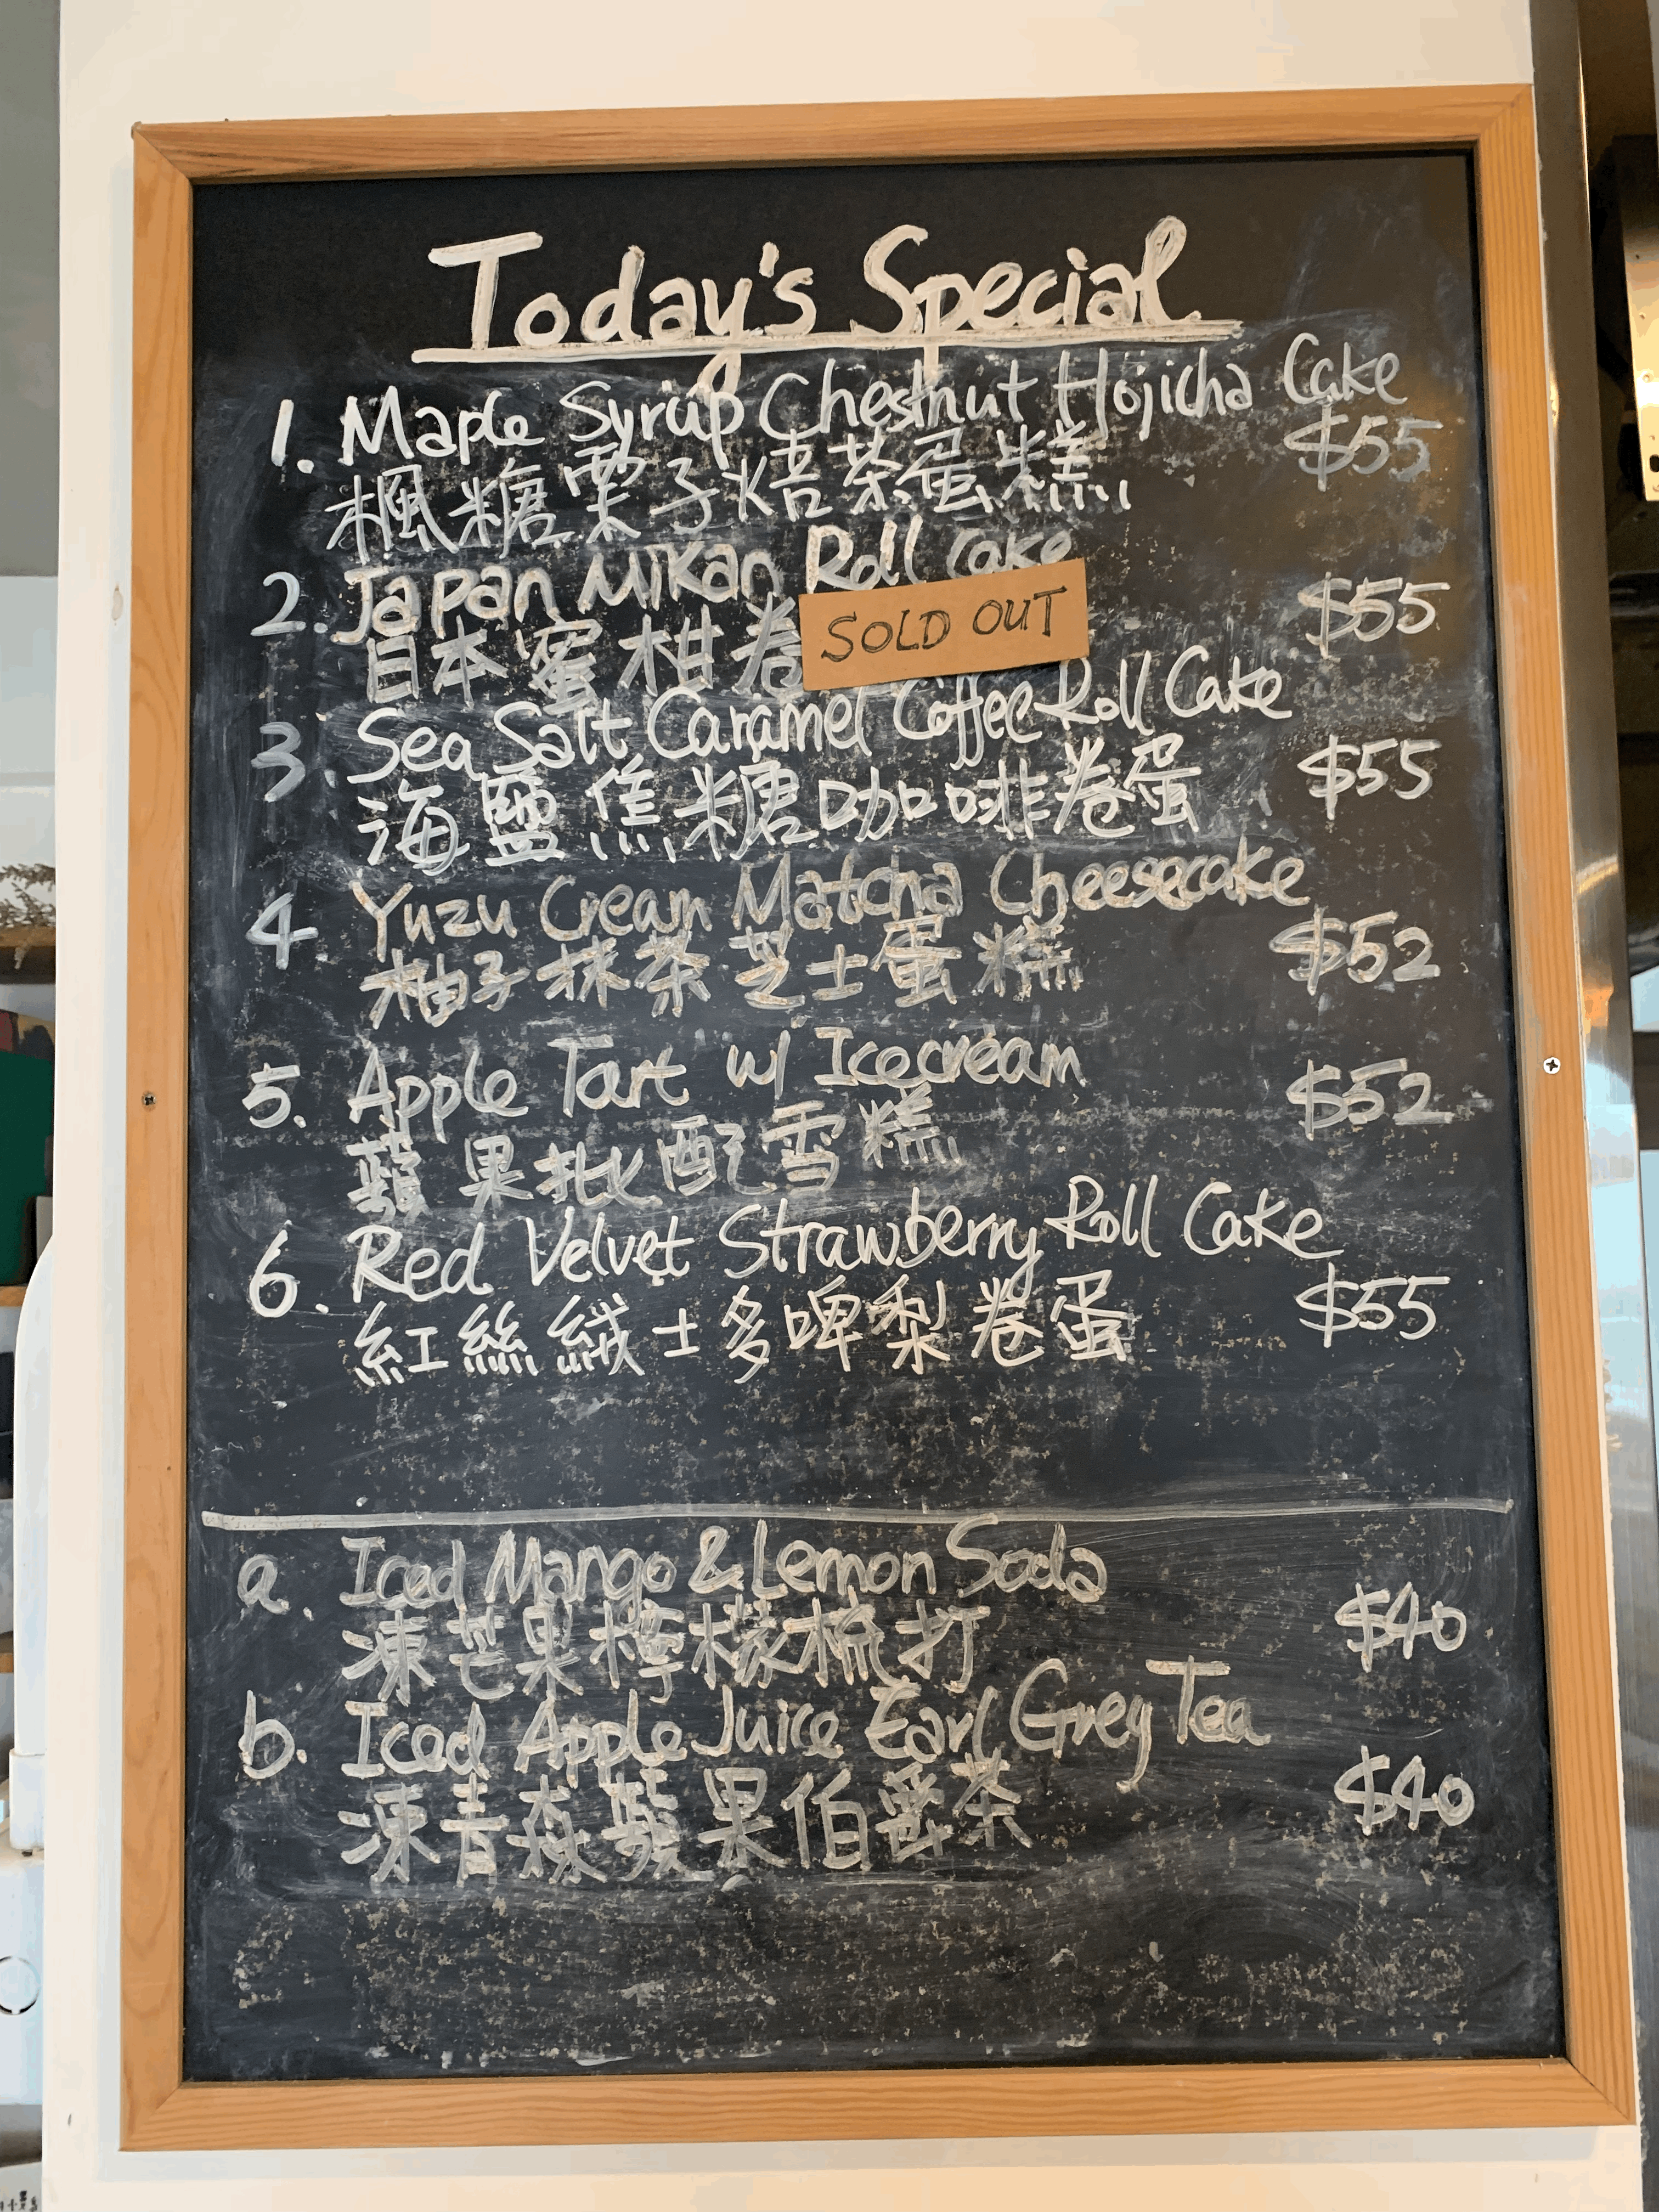 Today's Special
1. Maple Syrup Chestnut Hojicha Cake
楓糖栗子焙茶蛋糕 $55
2. Japan Mikan Roll Cake
日本蜜柑卷 SOLD OUT $55
3. Sea Salt Caramel Coffee Roll Cake
海鹽焦糖咖啡卷蛋 $55
4 Yuzu Cream Matcha Cheesecake
柚子抹茶芝士蛋糕 $52
5. Apple Tart w/ Icecream
蘋果批配雪糕 $52
6. Red Velvet Strawberry Roll Cake
紅絲絨士多啤梨卷蛋 $55
a. Iced Mango & Lemon Soda
凍芒果檸檬梳打 $40
b. Iced Apple Juice Earl Grey Tea
凍青森蘋果伯爵茶 $40